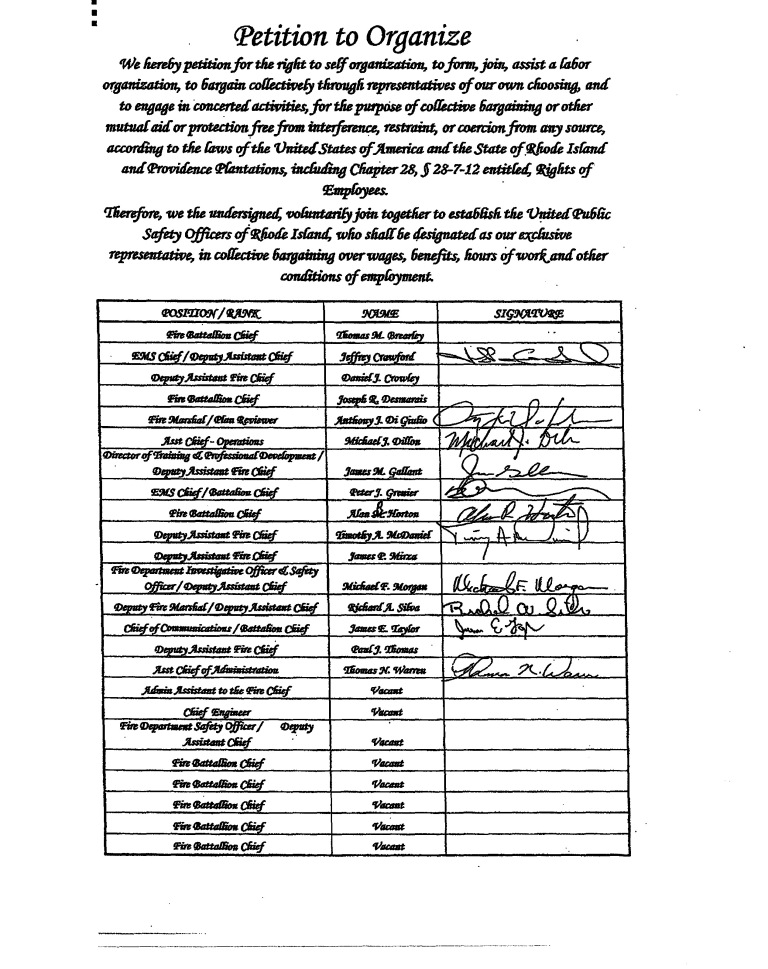 Petition to Organize
We hereby petition for the right to self organization, to form, join, assist a labor
organization, to bargain collectively through representatives of our own choosing, and
to engage in concerted activities, for the purpose of collective bargaining or other
mutual aid or protection free from interference, restraint, or coercion from any source,
according to the laws of the United States of America and the State of Rhode Island
and Providence Plantations, including Chapter 28, § 28-7-12 entitled, Rights of
Employees.
Therefore, we the undersigned, voluntarily join together to establish the United Public
Safety Officers of Rhode Island, who shall be designated as our exclusive
representative, in collective bargaining over wages, benefits, hours of work and other
conditions of employment.
POSITION / RANK NAME SIGNATURE
Fire Battallion Chief Thomas M. Brearley
EMS Chief / Deputy Assistant Chief Jeffrey Crawford
Deputy Assistant Fire Chief Daniel J. Crowley
Fire Battallion Chief Joseph R. Desmarais
Fire Marshal / Plan Reviewer Anthony J. Di Giulio
Asst Chief - Operations Michael J. Dillon Michael J. Dillon
Director of Training & Professional Development /
Deputy Assistant Fire Chief James M. Gallant
EMS Chief / Battalion Chief Peter J. Grenier
Fire Battallion Chief Alan R. Horton Alan R. Horton
Deputy Assistant Fire Chief Timothy A. McDaniel
Deputy Assistant Fire Chief James P. Mirza
Fire Department Investigative Officer & Safety
Officer / Deputy Assistant Chief Michael F. Morgan Michael F. Morgan
Deputy Fire Marshal / Deputy Assistant Chief Richard A. Silva Richard A. Silva
Chief of Communications / Battalion Chief James E. Taylor James E. Taylor
Deputy Assistant Fire Chief Paul J. Thomas
Asst Chief of Administration Thomas N. Warren Thomas N. Warren
Admin Assistant to the Fire Chief Vacant
Chief Engineer Vacant
Fire Department Safety Officer / Deputy
Assistant Chief Vacant
Fire Battallion Chief Vacant
Fire Battallion Chief Vacant
Fire Battallion Chief Vacant
Fire Battallion Chief Vacant
Fire Battallion Chief Vacant